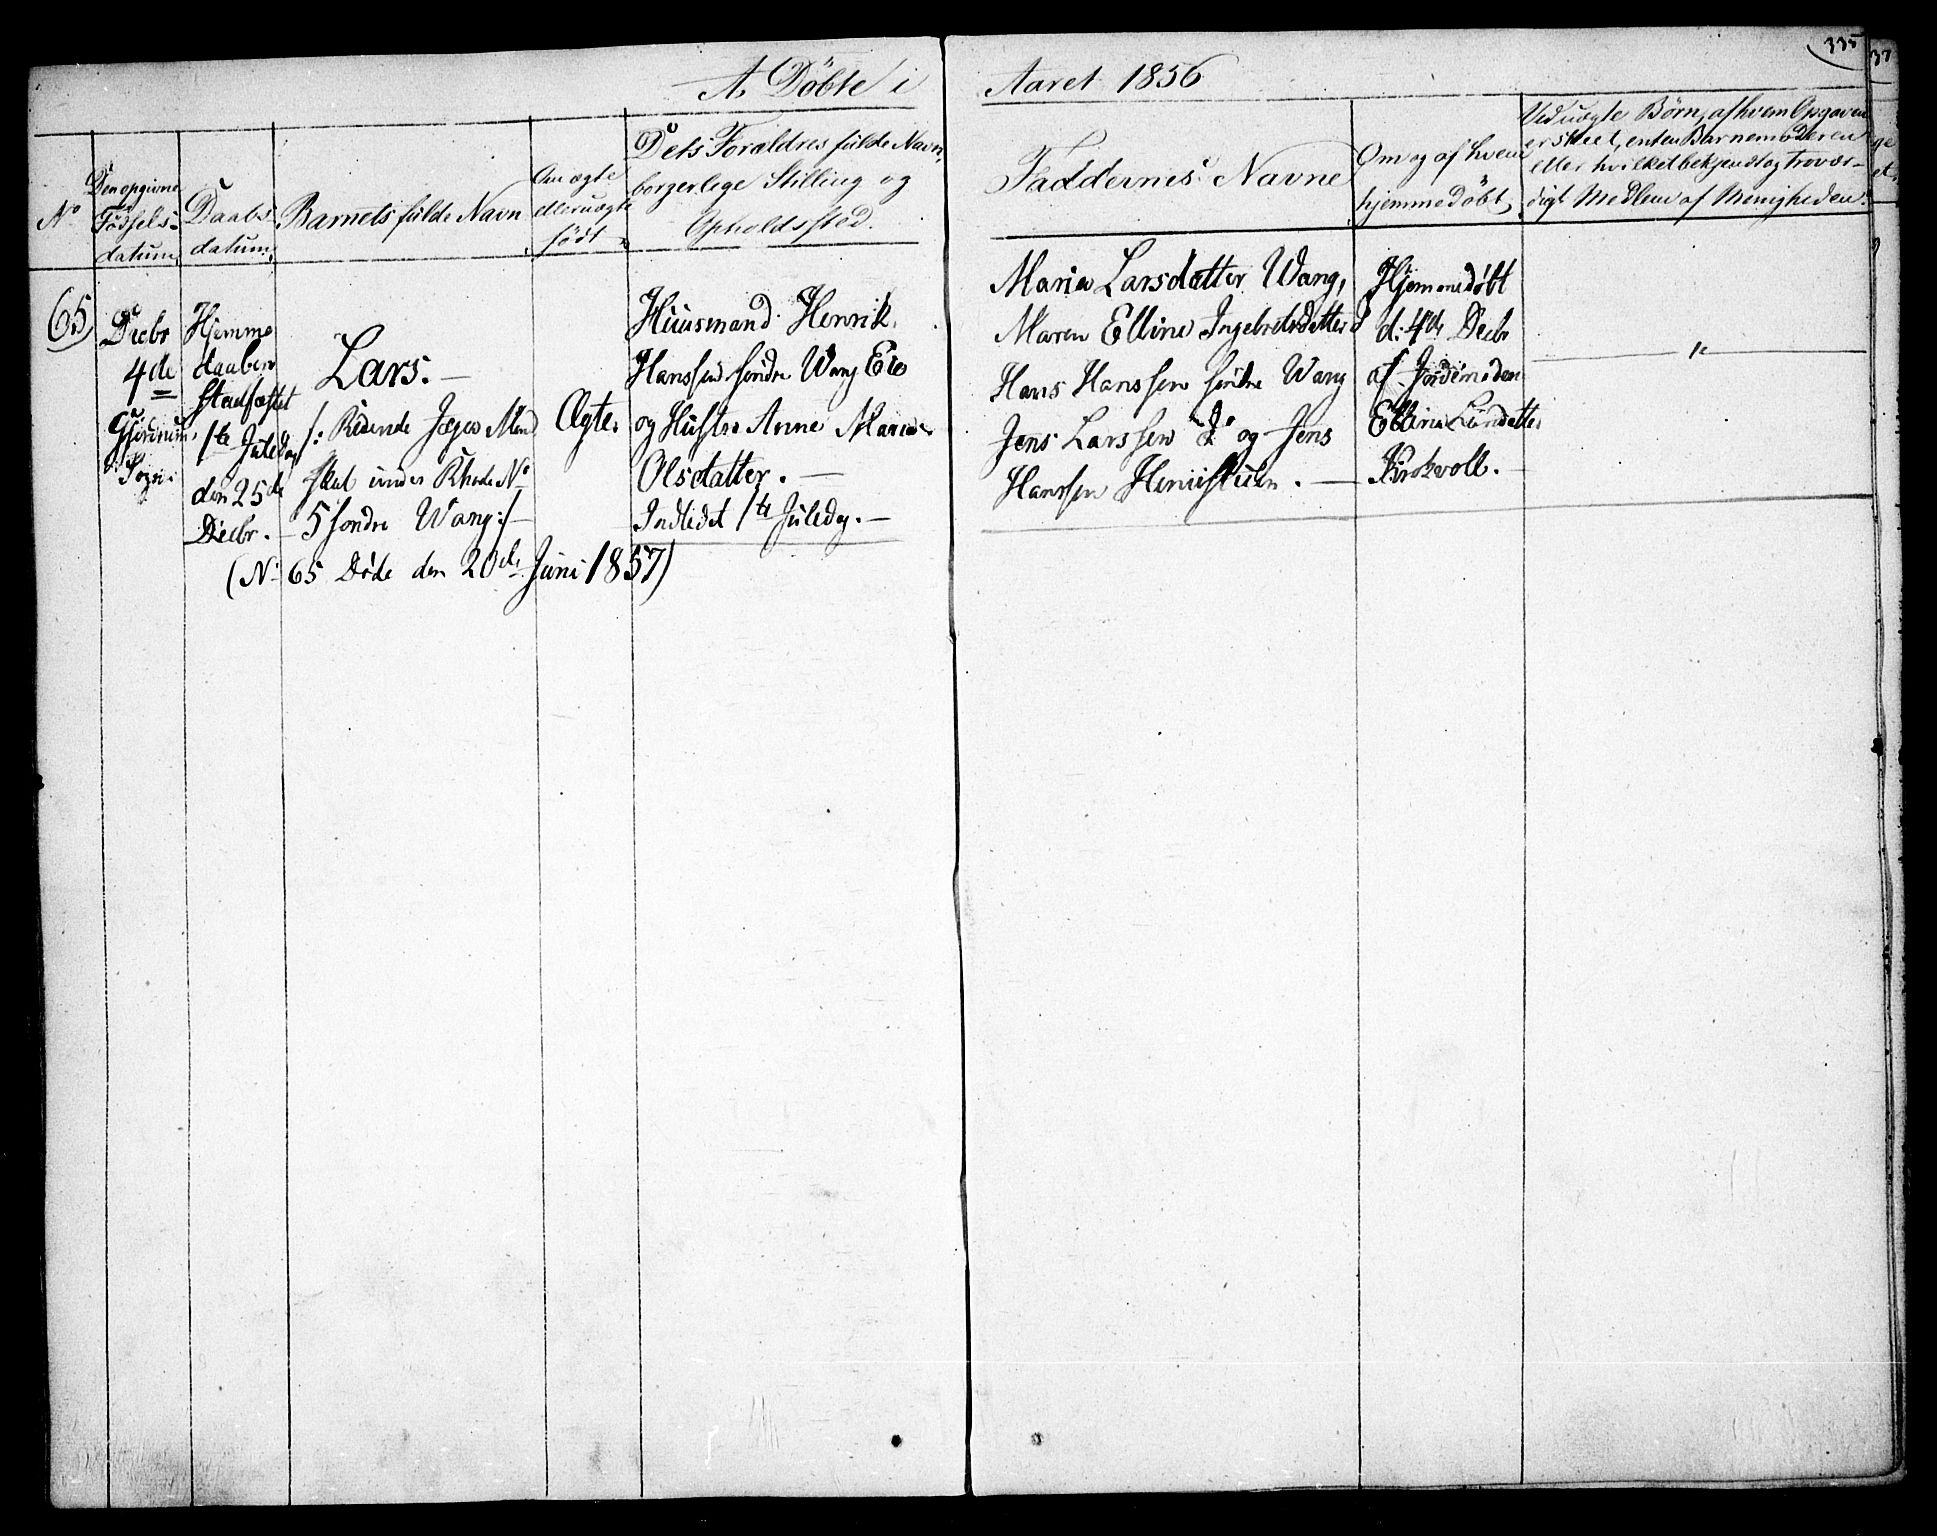 335
A, Döbte i Aaret 1856
No
Den opgivne
Födsels-
datum
Daabs
datum.
Barnets fulde Navn
Om ægte
eller uægte
födt
Dets Foraldres fulde Navn,
borgerlege Stilling og
Opholdssted.
Faddernes Navne
Om og af hvem
hjemmedöbt,
Ved uægte Börn, af hvem Opgaven
er skeet, enten Barnemoderen
eller hvilket bekjendt og trovær-
digt Medlem af Menigheden.
65
Decbr
4de
Gjerdrum
Sogn.
Hjemme
daaben
Stadfæstet
1te Juledag
den 25de
Decbr.
Lars.
/: Ridende Jæger Mand
skab under Rhode No
5 söndre Wang :/
Ægte.
Huusmand Henrik
Hanssen söndre Wang Eie
og Hustru Anne Marie
Olsdatter.
Indledet 1te Juledag.
Maria Larsdatter Wang,
Maren Elline Ingebretsdatter
Hans Hanssen söndre Wang
Jens Larssen do og Jens
Hanssen
Hjemmedöbt
d. 4de Decbr
af Jordemoden
Elline
Kirkevold.
(No 65 Döde den 20de Juni 1857)